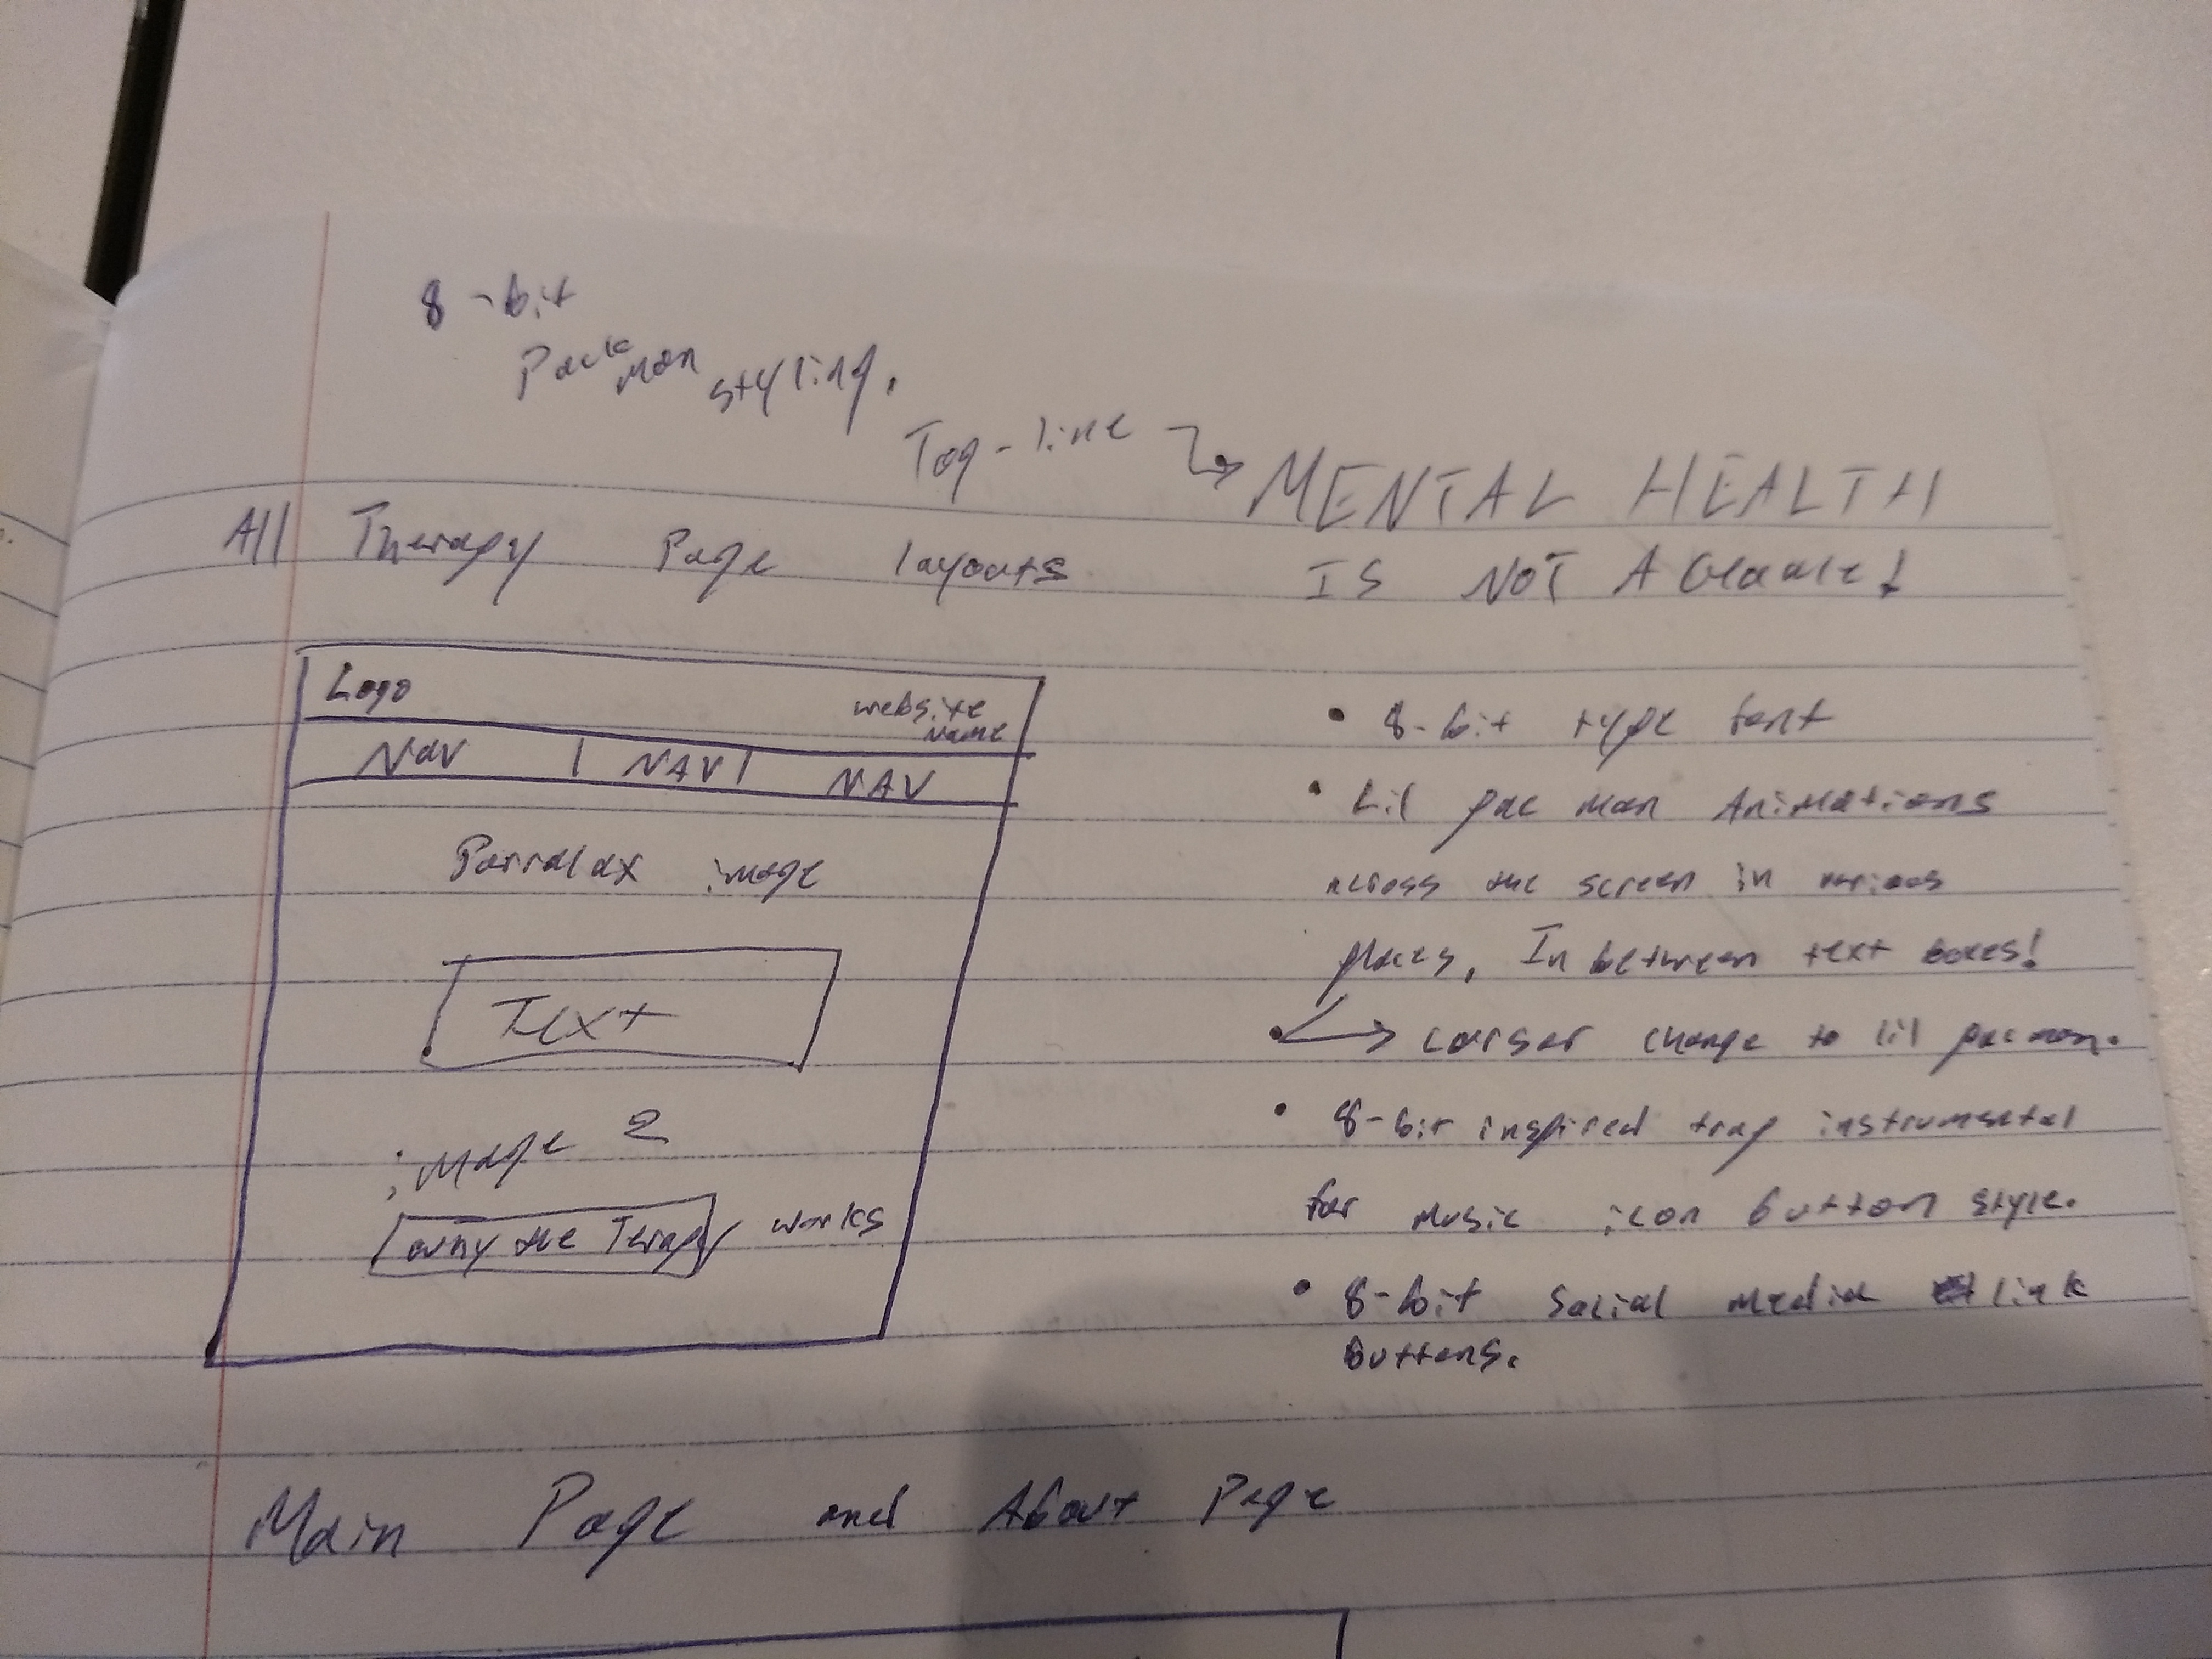 8-bit
Pack man styling.
Tag-line
MENTAL HEALTH
IS NOT A
All Therapy Page layouts
Logo
website
Name
Nav | NAV | NAV
Parralax image
Text
image 2
why the Terapy works
• 8-bit type font
• Lil pac man Animations
across the screen in various
places, In between text boxes!
• curser change to lil pacman.
• 8-bit inspired trap instrumental
for music icon button style.
• 8-bit Social media link
buttons.
Main Page and About Page